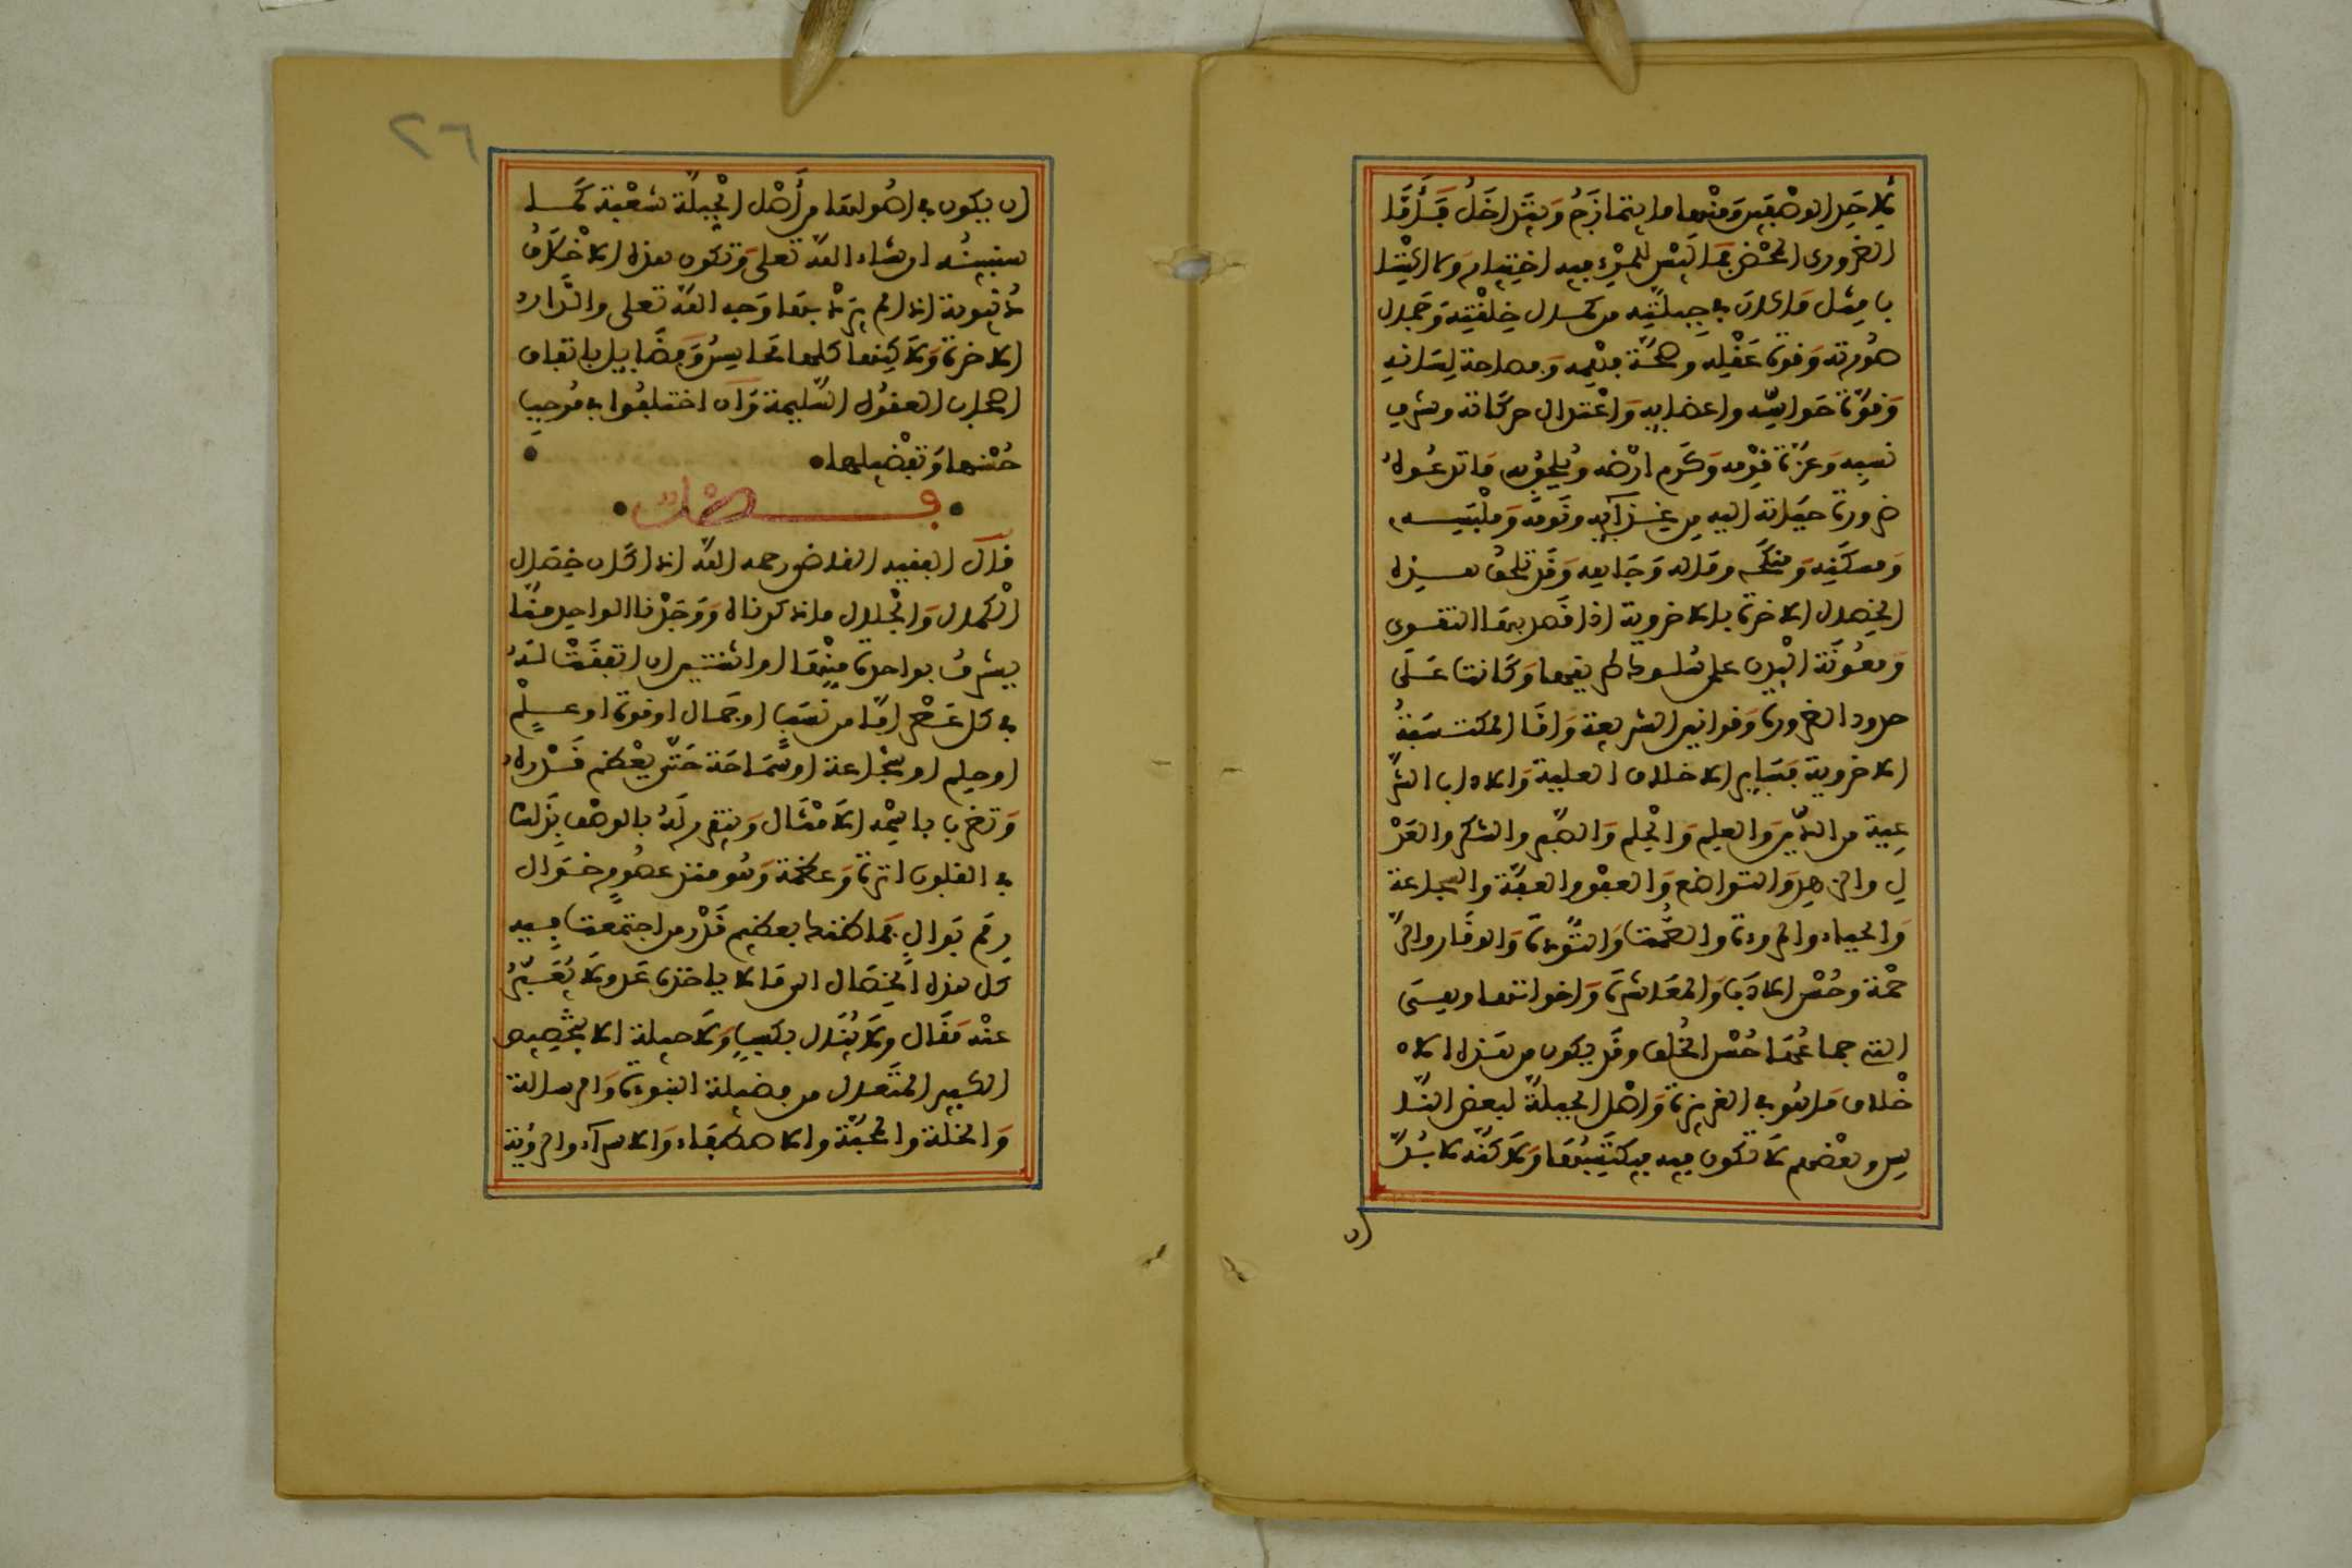 لاحد الوصفين ومنها ما يتمازج ويتداخل فأما
الضروري المحض فما ليس للمرء فيه اختيار ولا اكتسا
با مثل ما كان في جبلته من كمال خلقته وجمال
صورته وقوة عقله وصحة فهمه وفصاحة لسانه
وقوة حواسه واعضايه واعتدال حركاته وشرف
نسبه وعزة قومه وكرم ارضه ويلحق به ما تدعوه
ضرورة حياته اليه من غذآيه ونومه وملبسه
ومسكنه ومنكحه وماله وجاهه وقد تلحق هذه
الخصال الاخرة بالاخروية اذا قصد بها التقوى
ومعونة البدن على سلوك طريقها وكانت على
حدود الضرورة وقوانين الشريعة واما المكتسبة
الاخروية فساير الاخلاق العلية والاداب الشر
عية من الدين والعلم والحلم والصبر والشكر والعد
ل والزهد والتواضع والعفو والعفة والشجاعة
والحياء والمروءة والصمت والتؤدة والوقار والر
حمة وحسن الادب والمعاشرة واخواتها وهي
التي جماعها حسن الخلق وقد يكون من هذه الا
خلاق ما هو في الغريزة واصل الجبلة لبعض النا
س وبعضهم لا تكون فيه فيكتسبها ولاكنه لا بد
ان
٢٦
ان يكون فيه اصولها من أصل الجبلة شعبة كما
سنبينه ان شاء الله تعلى وتكون هذه الاخلاق
دنيوية اذا لم يرد بها وجه الله تعلى والدار
الاخرة ولاكنها كلها محاسن وفضايل باتفاق
اصحاب العقول السليمة وان اختلفوا في موجب
حسنها وتفضيلها
فصل
قال الفقيه القاضي رحمه الله اذا كان خصال
الكمال والجلال ما ذكرناه ووجدنا الواحد منا
يشرف بواحدة منها او اثنتين ان اتفقت له
في كل عصر اما من نسب او جمال او قوة او علم
او حلم او شجاعة او سماحة حتى يعظم قدره
وتضرب باسمه الامثال ويتقرر له بالوصف بذلك
في القلوب اثرة وعظمة وهو منذ عصور خوال
رمم بوال فما ظنك بعظيم قدر من اجتمعت فيه
كل هذه الخصال الى ما لا ياخذه عد ولا يعبر
عنه مقال ولا ينال بكسب ولا حيلة الا بتخصيص
الكبير المتعال من فضيلة النبوءة والرسالة
والخلة والمحبة والاصطفاء والاسرآء والرؤية